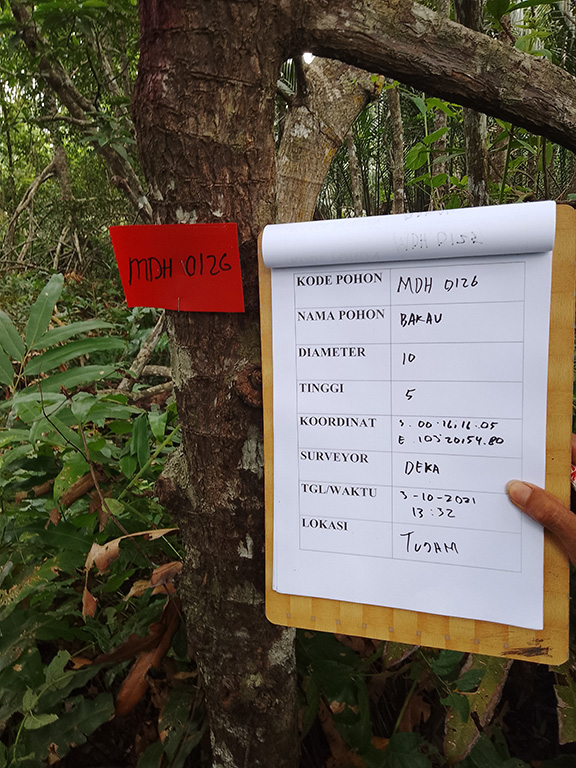 MDH 0126
MDH 0132
KODE POHON MDH 0126
NAMA POHON BAKAU
DIAMETER 10
TINGGI 5
KOORDINAT S. 00.16,16.05
E. 103°20,54.80
SURVEYOR DEKA
TGL/WAKTU 3-10-2021
13:32
LOKASI TUJAM